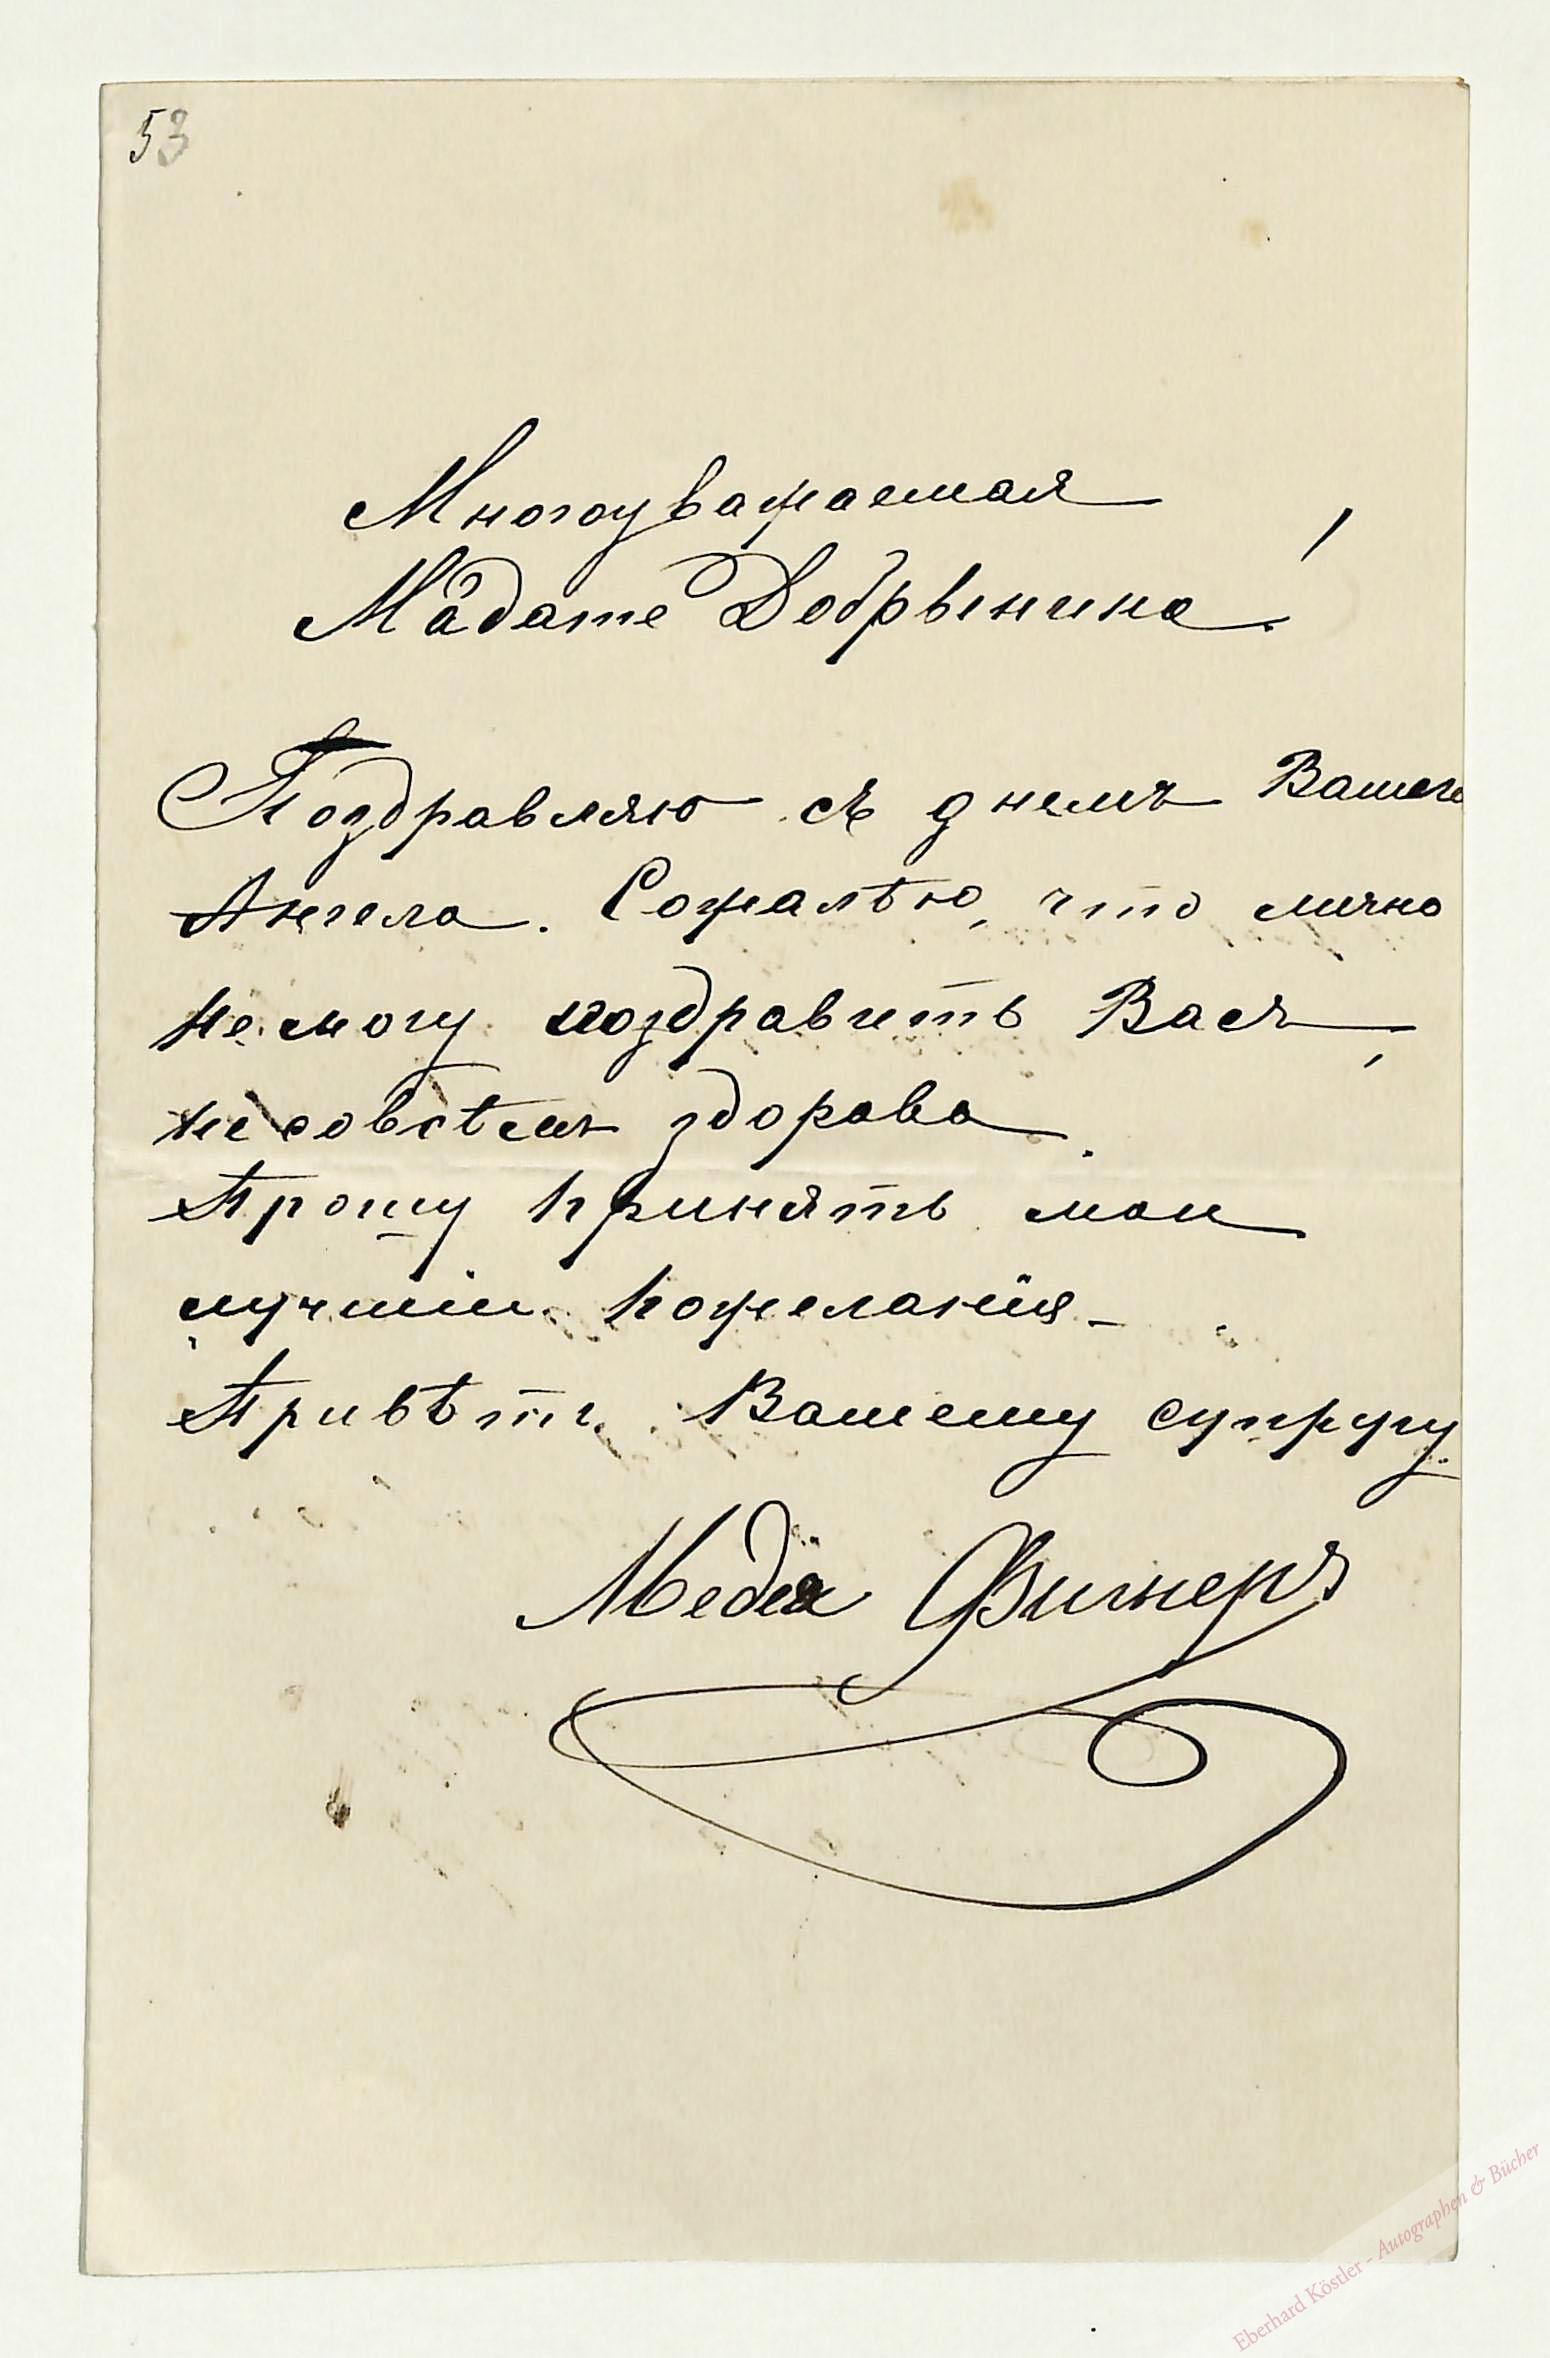 53
Многоуважаемая
Мадате Добрынина!
Поздравляю съ днемъ Вашего
Ангела. Сожалѣю, что лично
не могу поздравить Васъ,
не совсѣмъ здорова.
Прошу принять мои
лучшіи пожеланія
Привѣтъ Вашему супругу.
Медея Фигнеръ
Eberhard Köstler - Autographen & Bücher